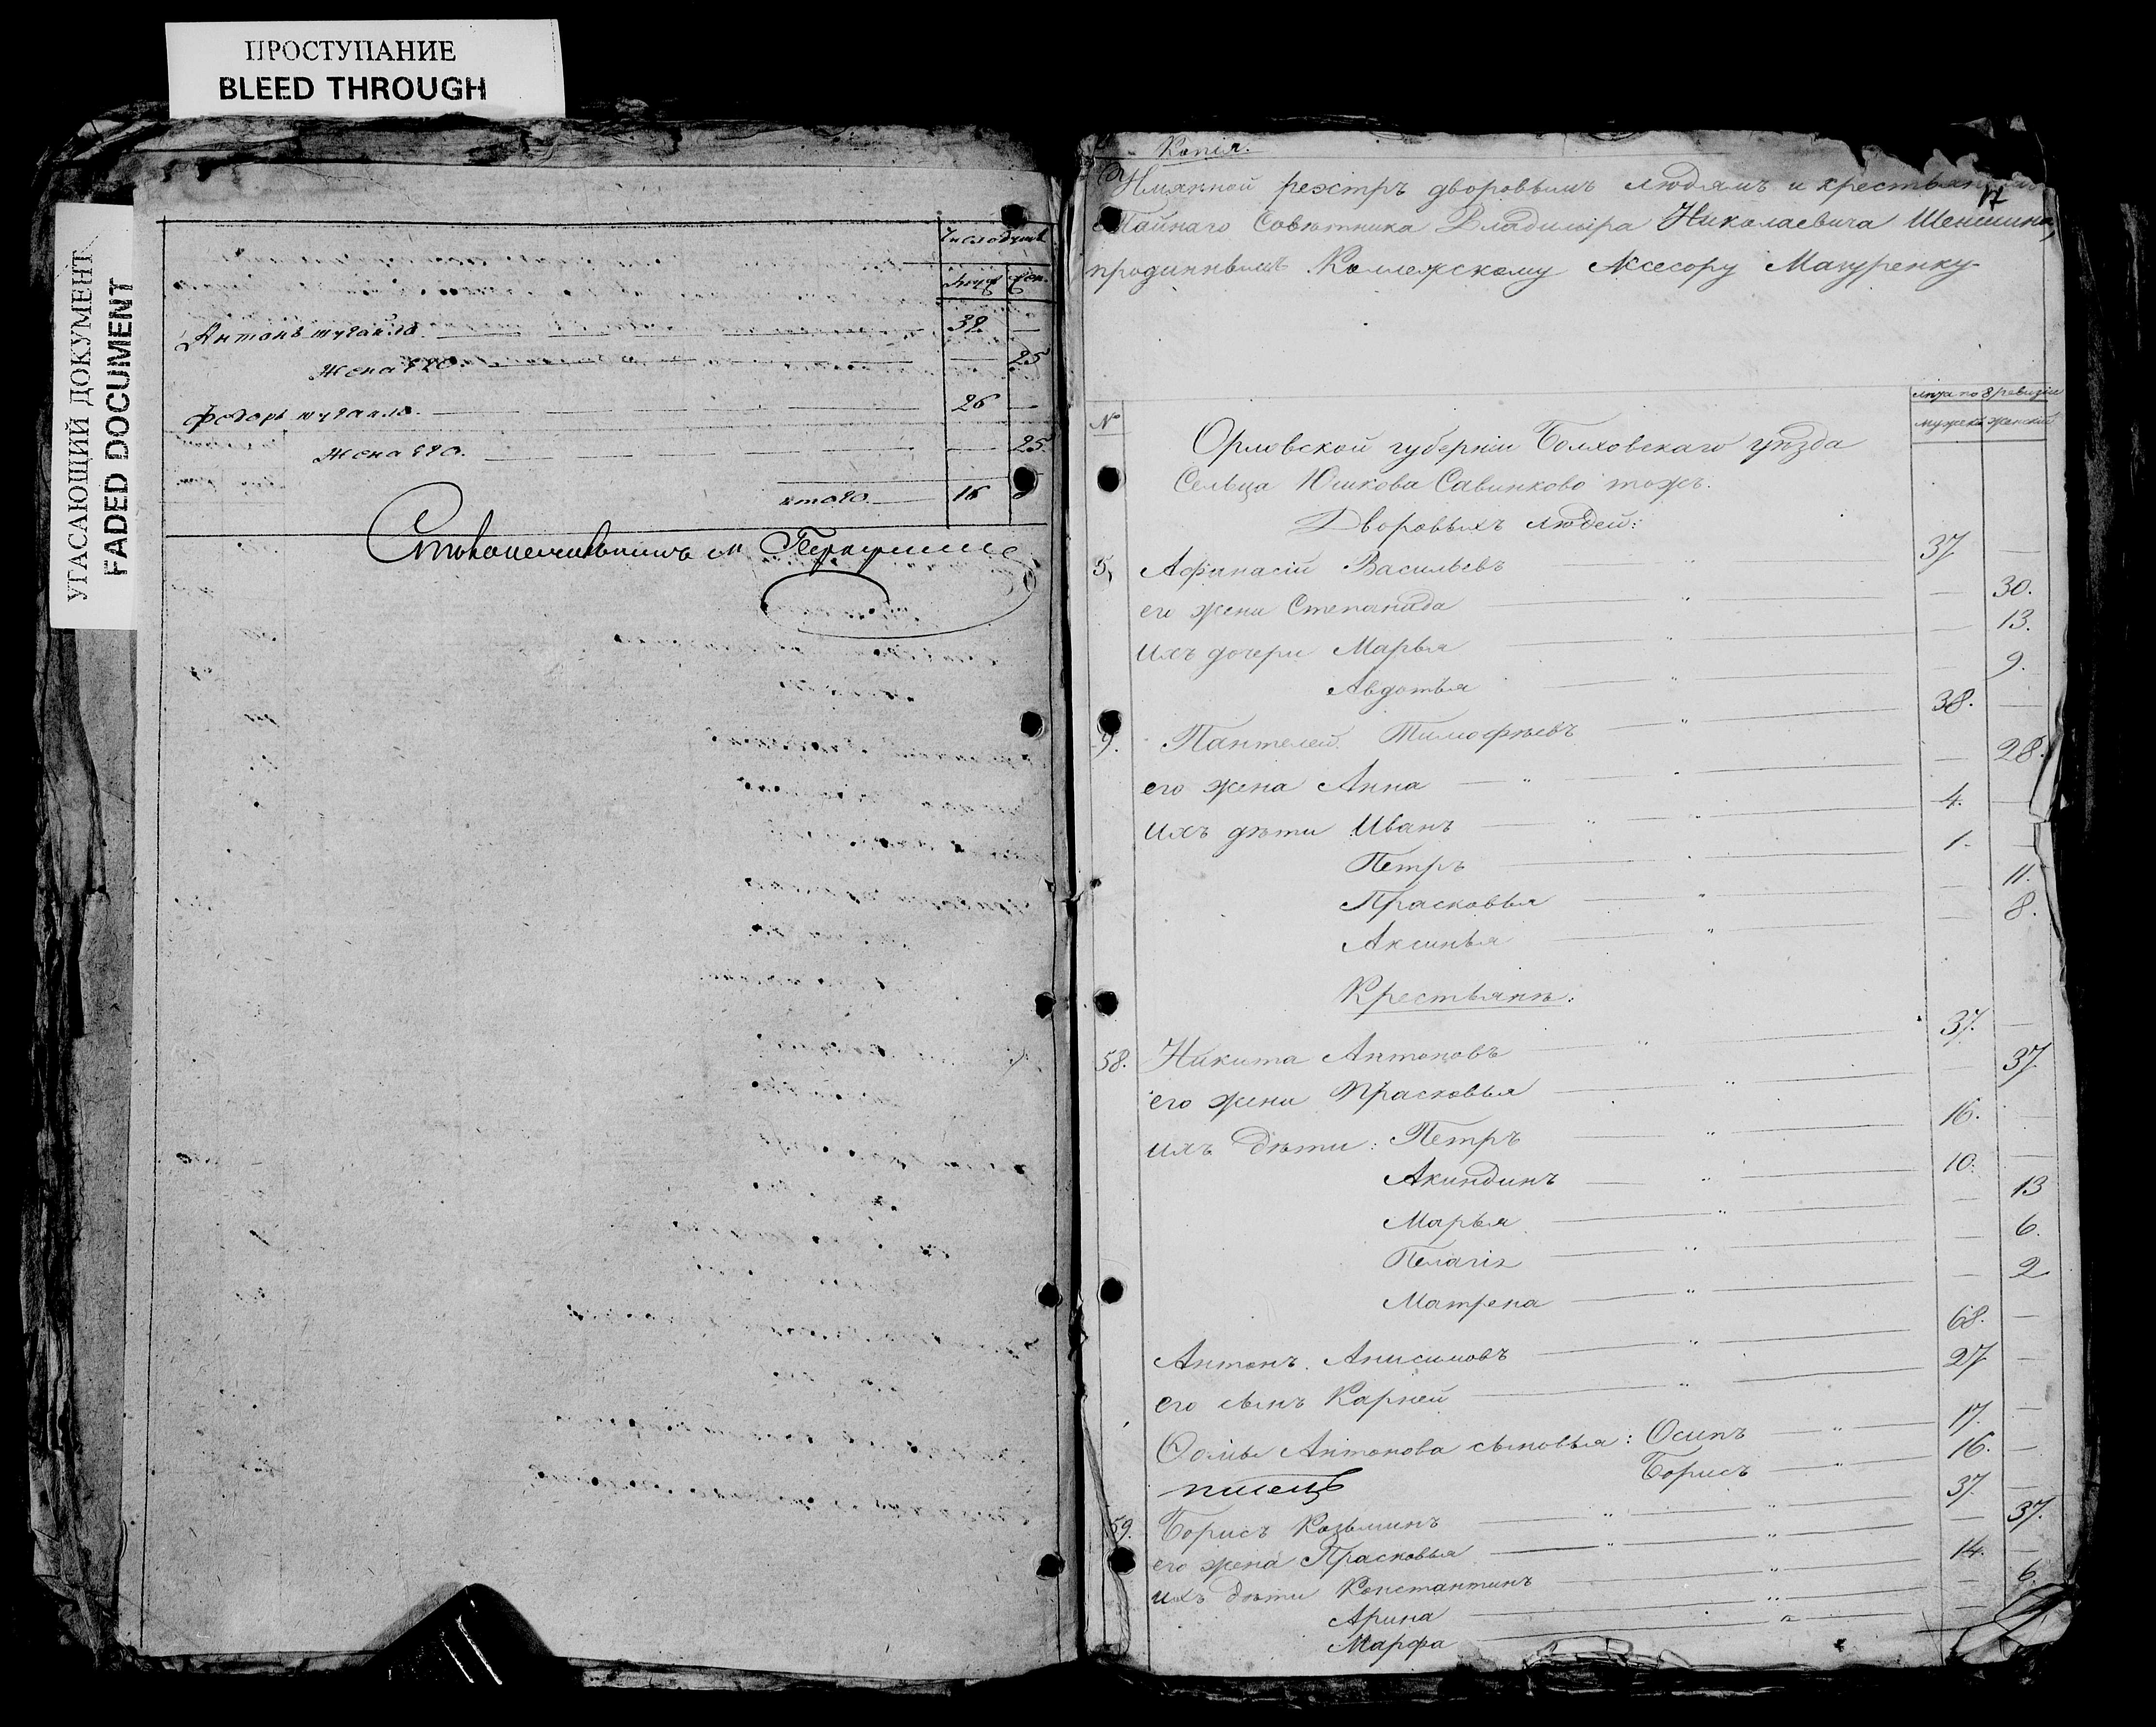 ПРОСТУПАНИЕ
BLEED THROUGH
УГАСАЮЩИЙ ДОКУМЕНТ
FADED DOCUMENT
Число душъ
муж жен.
Антонъ 39. —
Жена его. — 25
Федоръ 26 —
Жена его. — 25
итого 16
Копія.
Имянной реэстръ дворовымъ людямъ и крестьянамъ 17
Тайнаго Совѣтника Владиміра Николаевича Шеншина,
проданнымъ Коллежскому Ассесору Мазуренку
№
лѣта по 8 ревизіи
мужеска женский
Орловской губерніи Болховскаго уѣзда
Сельца Юшкова Савинково тожъ.
Дворовыхъ людей:
5, Афанасій Васильевъ 37 —
его жена Степанида — 30.
ихъ дочери Марья — 13.
Авдотья — 9.
9. Пантелей Тимофѣевъ 38. —
его жена Анна — 28.
ихъ дѣти Иванъ 4. —
Петръ 1. —
Прасковья — 11.
Аксинья — 8.
Крестьянъ:
58. Никита Антоновъ 37. —
его жена Прасковья — 37
ихъ дѣти: Петръ 16. —
Акиндинъ 10. —
Марья — 13
Пелагія — 6.
Матрена — 2
Антонъ Анисимовъ 68. —
его сынъ Карней 27 —
Фомы Антонова сыновья: Осипъ 17. —
Борисъ 16. —
писецъ
59. Борисъ Козьминъ 37. —
его жена Прасковья — 37.
ихъ дѣти Константинъ 14. —
Арина — 6.
Марфа —